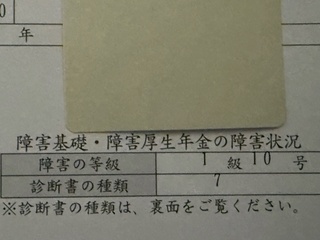 0
年
障害基礎・障害厚生年金の障害状況
障害の等級 1 級 10 号
診断書の種類 7
※診断書の種類は、裏面をご覧ください。